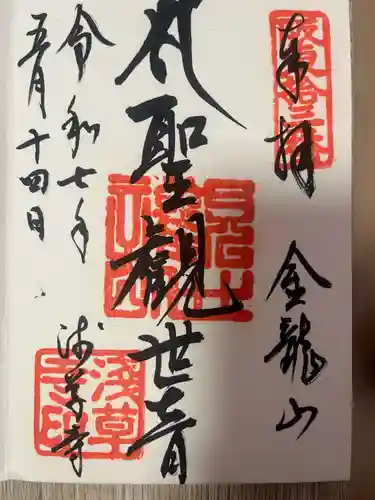 奉拝
金龍山
聖観世音
令和七年
五月十四日
浅草寺
浅草寺印